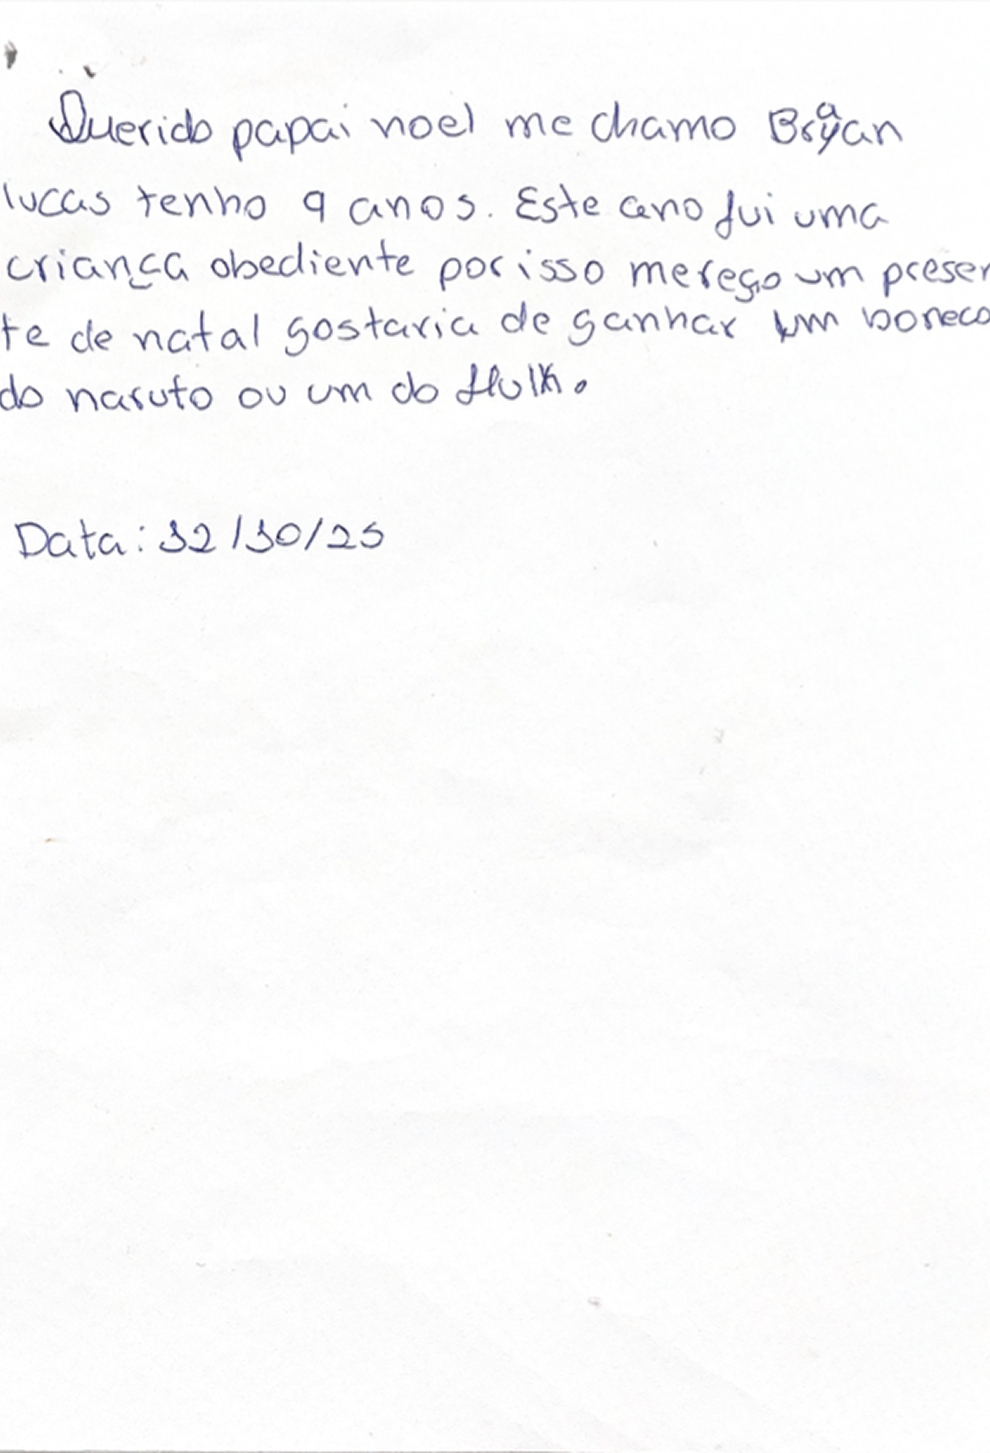 Querido papai noel me chamo Bryan
lucas tenho 9 anos. Este ano fui uma
criança obediente por isso mereço um presen
te de natal gostaria de ganhar um boneco
do naruto ou um do Hulk.
Data: 12/10/25